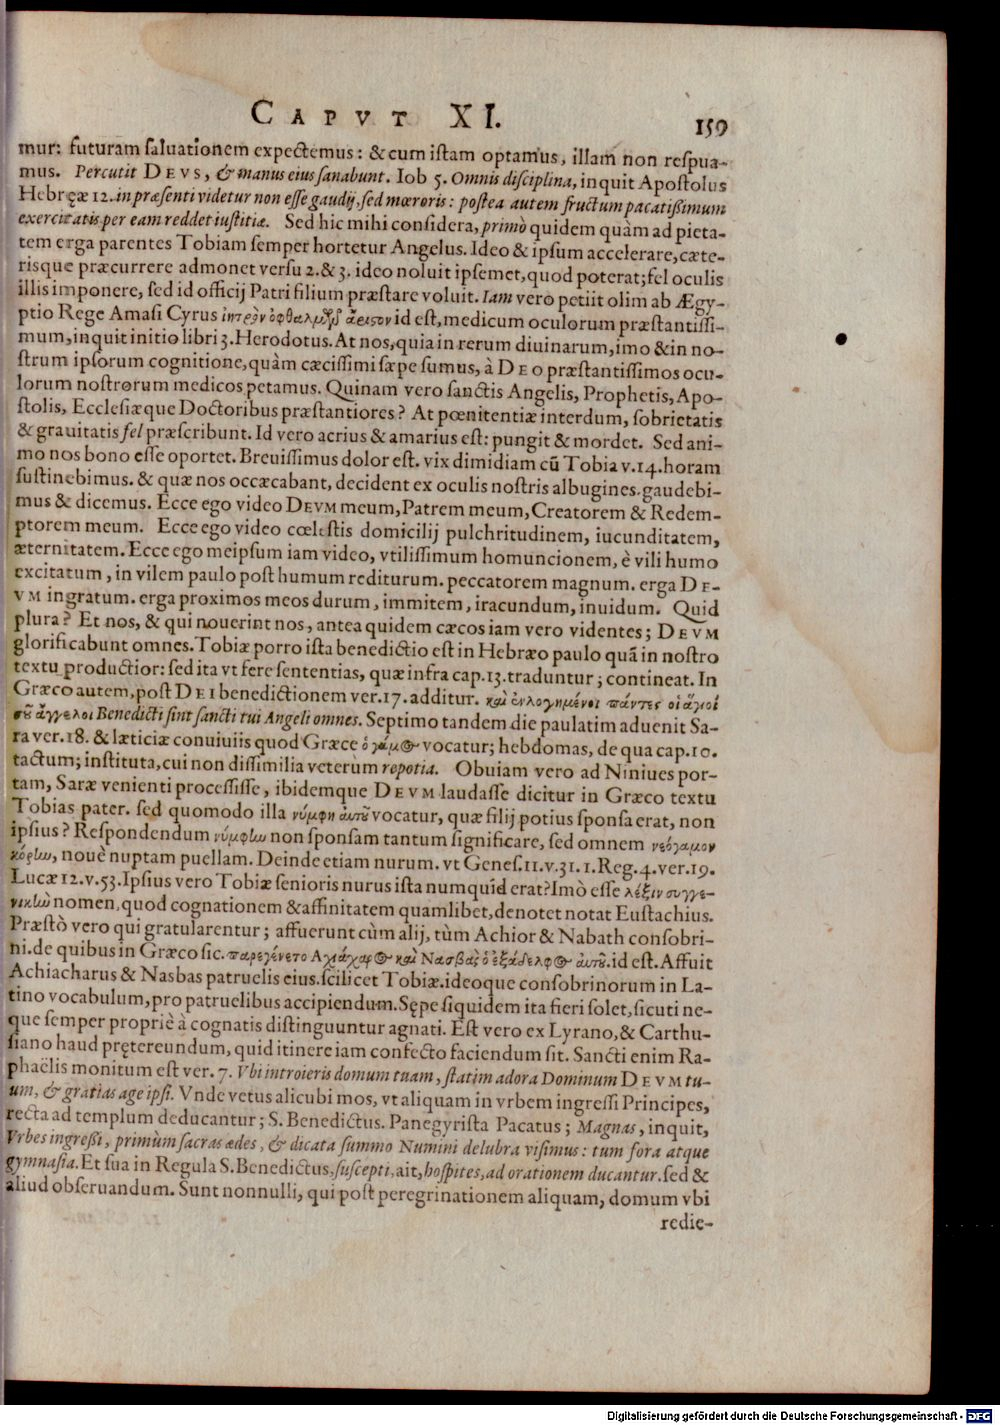 CAPVT XI. 159
mur: futuram saluationem expectemus: & cum istam optamus, illam non respua-
mus. Percutit DEVS, & manus eius sanabunt. Iob 5. Omnis disciplina, inquit Apostolus
Hebręæ 12. in præsenti videtur non esse gaudij, sed mœroris: postea autem fructum pacatißimum
exercitatis per eam reddet iustitiæ. Sed hic mihi considera, primò quidem quàm ad pieta-
tem erga parentes Tobiam semper hortetur Angelus. Ideo & ipsum accelerare, cæte-
risque præcurrere admonet versu 2. & 3. ideo noluit ipsemet, quod poterat; fel oculis
illis imponere, sed id officij Patri filium præstare voluit. Iam vero petiit olim ab Ægy-
ptio Rege Amasi Cyrus ἰητρὸν ὀφθαλμῶν ἄριστον id est, medicum oculorum præstantissi-
mum, inquit initio libri 3. Herodotus. At nos, quia in rerum diuinarum, imo & in no-
strum ipsorum cognitione, quàm cæcissimi sæpe sumus, à DEO præstantissimos ocu-
lorum nostrorum medicos petamus. Quinam vero sanctis Angelis, Prophetis, Apo-
stolis, Ecclesiæque Doctoribus præstantiores? At pœnitentiæ interdum, sobrietatis
& grauitatis fel præscribunt. Id vero acrius & amarius est: pungit & mordet. Sed ani-
mo nos bono esse oportet. Breuissimus dolor est. vix dimidiam cũ Tobia v. 14. horam
sustinebimus. & quæ nos occæcabant, decident ex oculis nostris albugines. gaudebi-
mus & dicemus. Ecce ego video DEVM meum, Patrem meum, Creatorem & Redem-
ptorem meum. Ecce ego video cœlestis domicilij pulchritudinem, iucunditatem,
æternitatem. Ecce ego meipsum iam video, vtilissimum homuncionem, è vili humo
excitatum, in vilem paulo post humum rediturum. peccatorem magnum. erga DE-
VM ingratum. erga proximos meos durum, immitem, iracundum, inuidum. Quid
plura? Et nos, & qui nouerint nos, antea quidem cæcos iam vero videntes; DEVM
glorificabunt omnes. Tobiæ porro ista benedictio est in Hebræo paulo quã in nostro
textu productior: sed ita vt fere sententias, quæ infra cap. 13. traduntur; contineat. In
Græco autem, post DEI benedictionem ver. 17. additur. καὶ ἐυλογημένοι πάντες οἱ ἅγιοί
σοῦ ἄγγελοι Benedicti sint sancti tui Angeli omnes. Septimo tandem die paulatim aduenit Sa-
ra ver. 18. & lætíciæ conuiuiis quod Græce ὁ γάμος vocatur; hebdomas, de qua cap. 10.
tactum; instituta, cui non dissimilia veterùm repotia. Obuiam vero ad Niniues por-
tam, Saræ venienti processisse, ibidemque DEVM laudasse dicitur in Græco textu
Tobias pater. sed quomodo illa νύμφη ἀυτοῦ vocatur, quæ filij potius sponsa erat, non
ipsius? Respondendum νύμφην non sponsam tantum significare, sed omnem νεόγαμον
κόρην, nouè nuptam puellam. Deinde etiam nurum. vt Genes. 11. v. 31. 1. Reg. 4. ver. 19.
Lucæ 12. v. 53. Ipsius vero Tobiæ senioris nurus ista numquid erat? Imò esse λέξιν συγγε-
νικὴν nomen, quod cognationem & affinitatem quamlibet, denotet notat Eustachius.
Præstò vero qui gratularentur; affuerunt cùm alij, tùm Achior & Nabath consobri-
ni. de quibus in Græco sic. παρεγένετο Αχιάχαρος καὶ Νασβὰς ὁ ἐξάδελφος ἀυτοῦ. id est. Affuit
Achiacharus & Nasbas patruelis eius. scilicet Tobiæ. ideoque consobrinorum in La-
tino vocabulum, pro patruelibus accipiendum. Sępe siquidem ita fieri solet, sicuti ne-
que semper propriè à cognatis distinguuntur agnati. Est vero ex Lyrano, & Carthu-
siano haud prętereundum, quid itinere iam confecto faciendum sit. Sancti enim Ra-
phaëlis monitum est ver. 7. Vbi introieris domum tuam, statim adora Dominum DEVM tu-
um, & gratias age ipsi. Vnde vetus alicubi mos, vt aliquam in vrbem ingressi Principes,
recta ad templum deducantur; S. Benedictus. Panegyrista Pacatus; Magnas, inquit,
Vrbes ingreßi, primùm sacras ædes, & dicata summo Numini delubra visimus: tum fora atque
gymnasia. Et sua in Regula S. Benedictus, suscepti, ait, hospites, ad orationem ducantur. sed &
aliud obseruandum. Sunt nonnulli, qui post peregrinationem aliquam, domum vbi
redie-
Digitalisierung gefördert durch die Deutsche Forschungsgemeinschaft - DFG